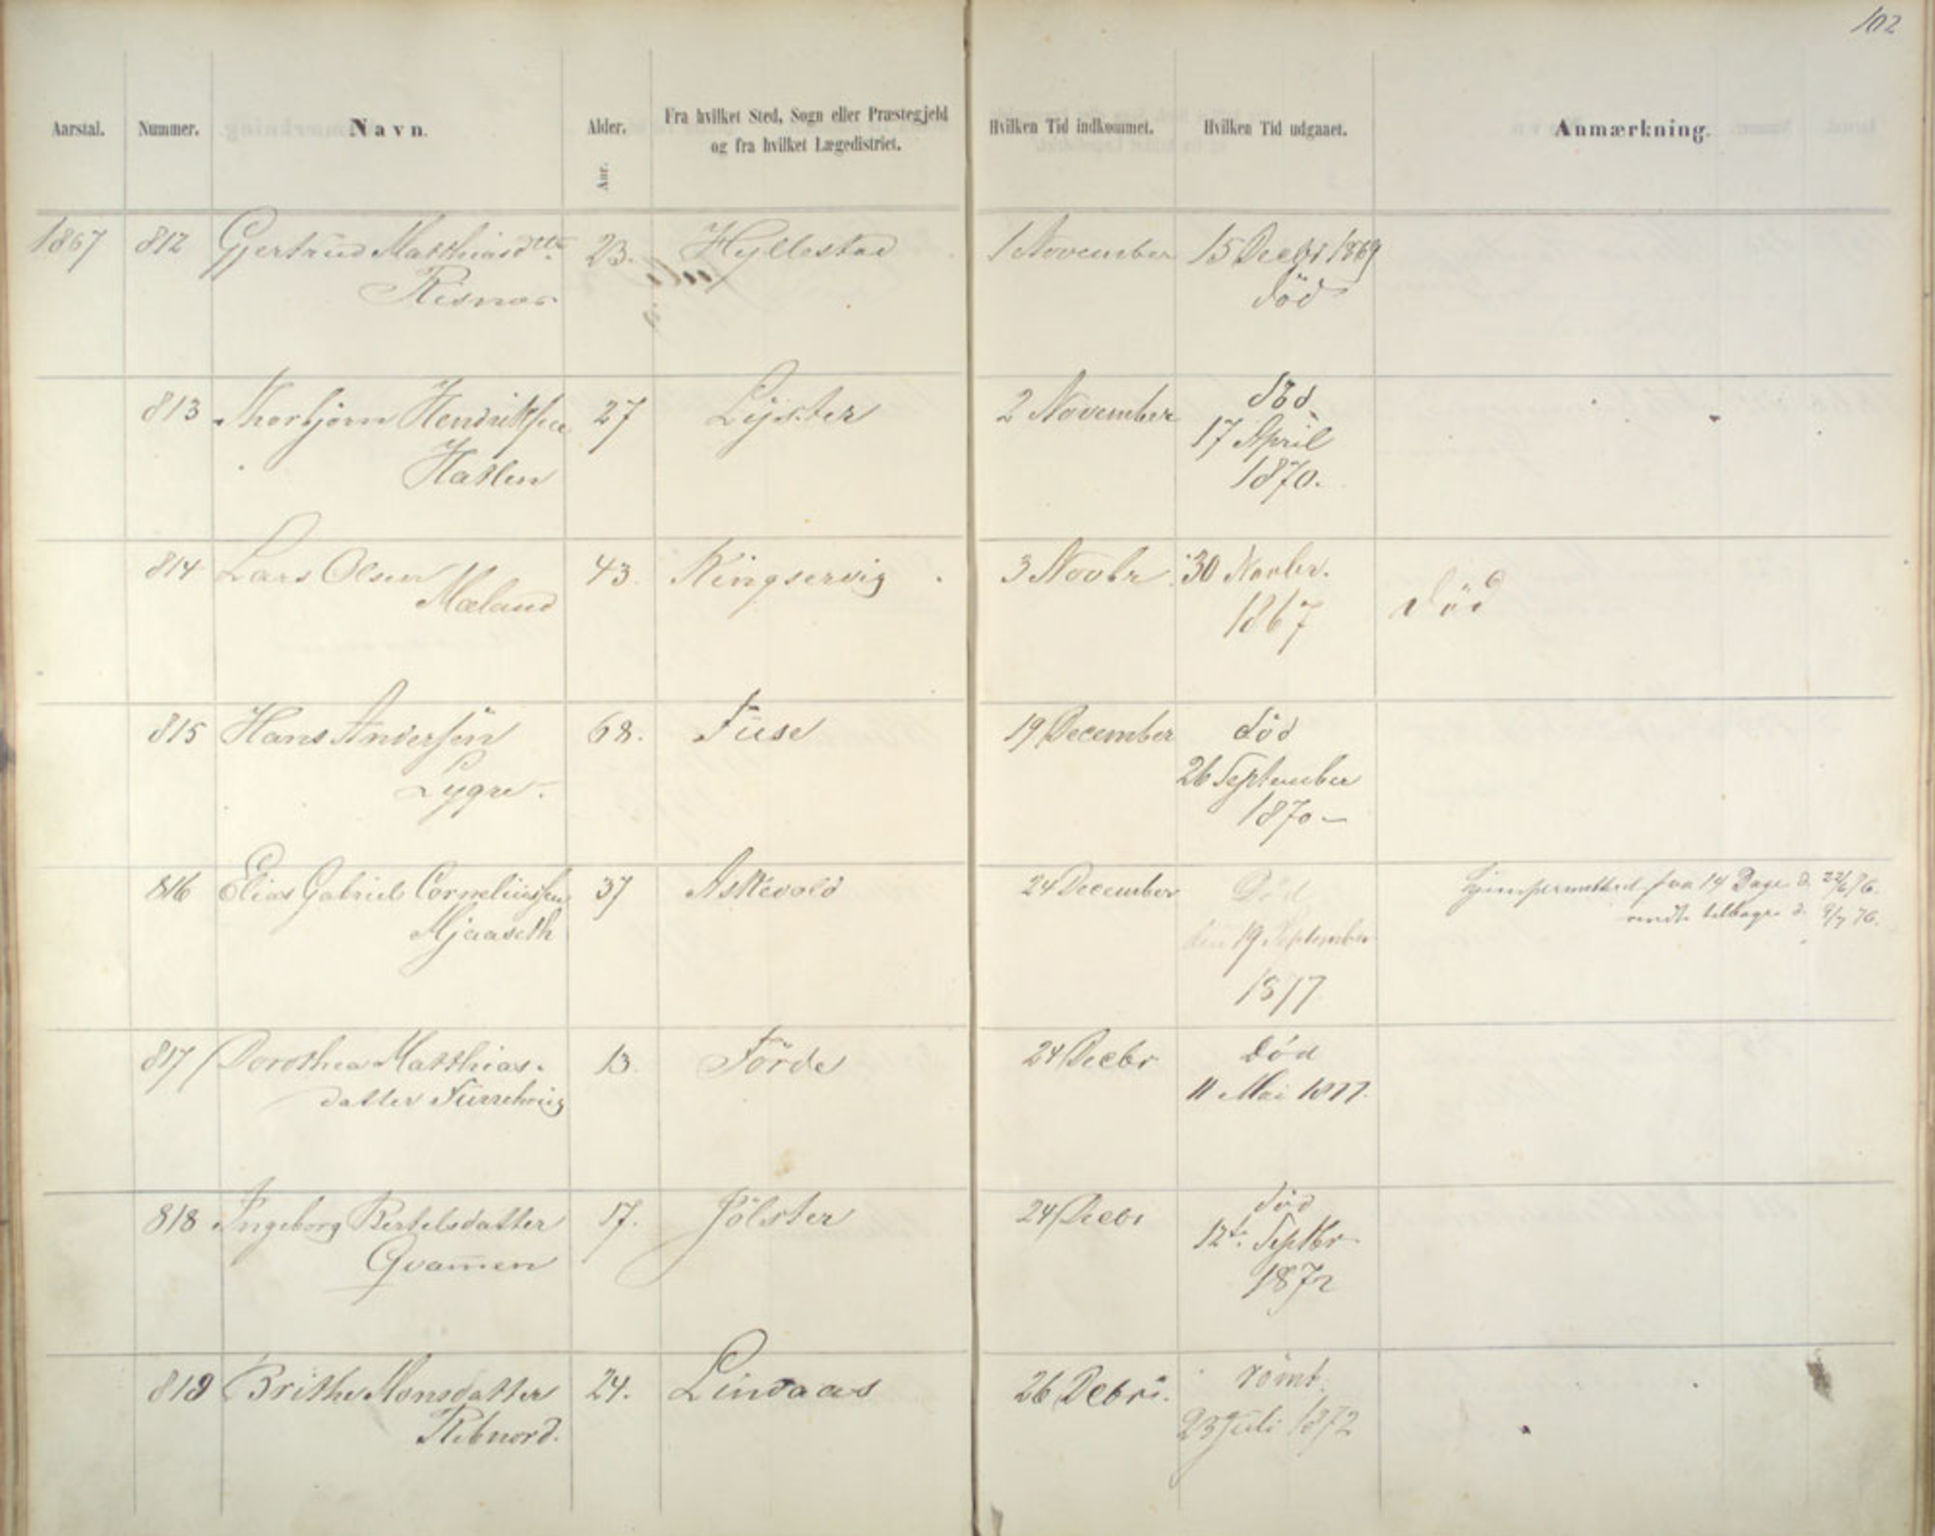 102
Aarstal. Nummer. Navn. Alder. Fra hvilket Sted, Sogn eller Præstegjeld Hvilken Tid indkommet. Hvilken Tid udgaaet. Anmærkning.
og fra hvilket Lægedistrict.
Aar.
1867 812 Gjertrud Matthiasdtr. 23. Hyllestad 1 November 15 Decbr 1869
Risnæs død
813 Thorbjørn Hendriksen 27 Lyster 2 November død
Hatlen 17 April
1870.
814 Lars Olsen 43. Kingservig 3 Novbr 30 Novbr. død
Mæland 1867
815 Hans Andersøn 68. Fuse 19 December død
Lygre. 26 September
1870
816 Elias Gabriel Corneliussen 37 Askevold 24 December Død Hjempermitteret paa 14 Dage d. 22/6 76.
Mjaaseth den 19 September vendte tilbage d. 9/7 76.
1877
817 Dorothea Matthias- 13. Førde 24 Decbr Død
datter Furrehvig 11 Mai 1877.
818 Ingeborg Bertelsdatter 17. Jølster 24 Decbr død
Qvamen 12te Septbr
1872
819 Brithe Monsdatter 24. Lindaas 26 Debr. rømt
Ribnord. 23 Juli 1872